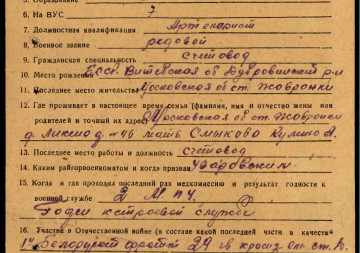 5. Образование
6. На ВУС 7
7. Должностная квалификация Артелерист
8. Военное звание рядовой
9. Гражданская специальность счетовод
10. Место рождения Бсср. Витебская об Дубровинский р-н
11. Последнее место жительства Московская об ст. Жаворонки
12. Где проживает в настоящее время семья (фамилия, имя и отчество жены или
родителей и точный их адрес) Московская об ст. Жаворонки
д. мать Смыкова
13. Последнее место работы и должность счетовод
14. Каким райгорвоенкоматом и когда призван
15. Когда и где проходил последний раз медкомиссию и результат годности к
военной службе
Годен к строевой службе
16. Участие в Отечественной войне (в составе какой последней части и в качестве
1й Белоруский фронт 29 гв